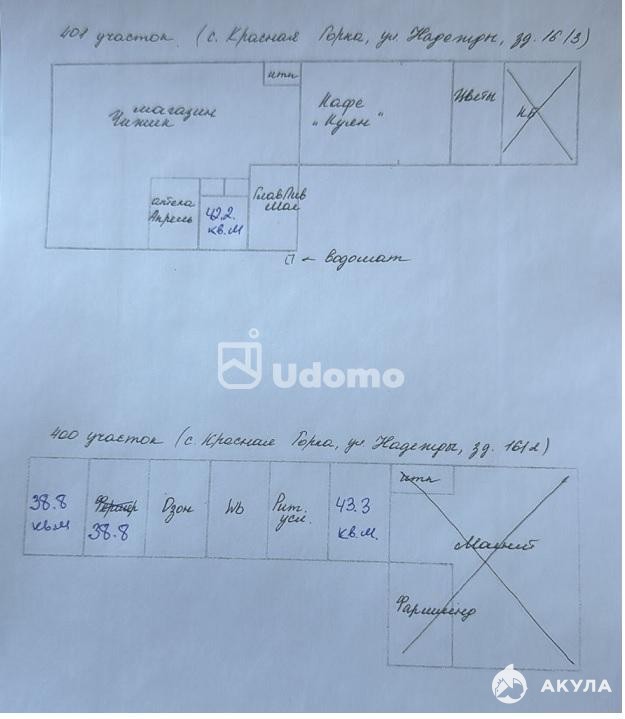 401 участок (с. Красная Горка, ул. Надежды, зд. 16/3)
итп
магазин
Чижик
Кафе
"Кулен"
Цветы
КБ
аптека
Апрель
42.2
кв.м
ГлавПив
Маг
← водомат
Udomo
400 участок (с. Красная Горка, ул Надежды, зд. 16/2)
38.8
кв.м
38.8
Озон
Wb
Рит.
усл.
43.3
кв.м.
итп
Магнит
Фармленд
АКУЛА